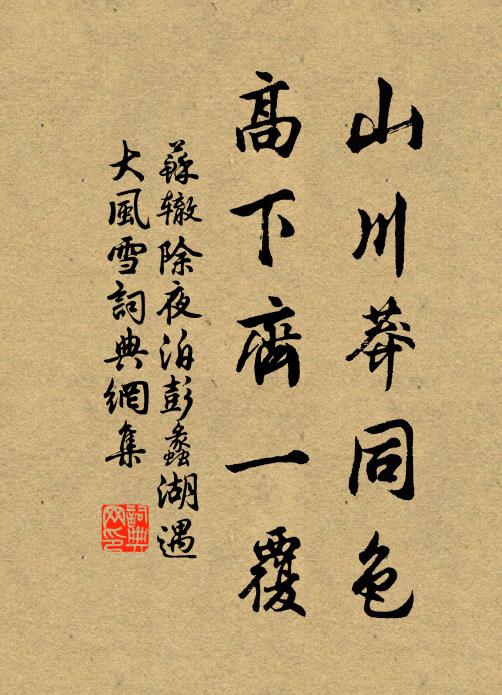 山川莽同色
高下齊一覆
蘇辙除夜泊彭蠡湖遇
大風雪詞典網集
詞典
网印